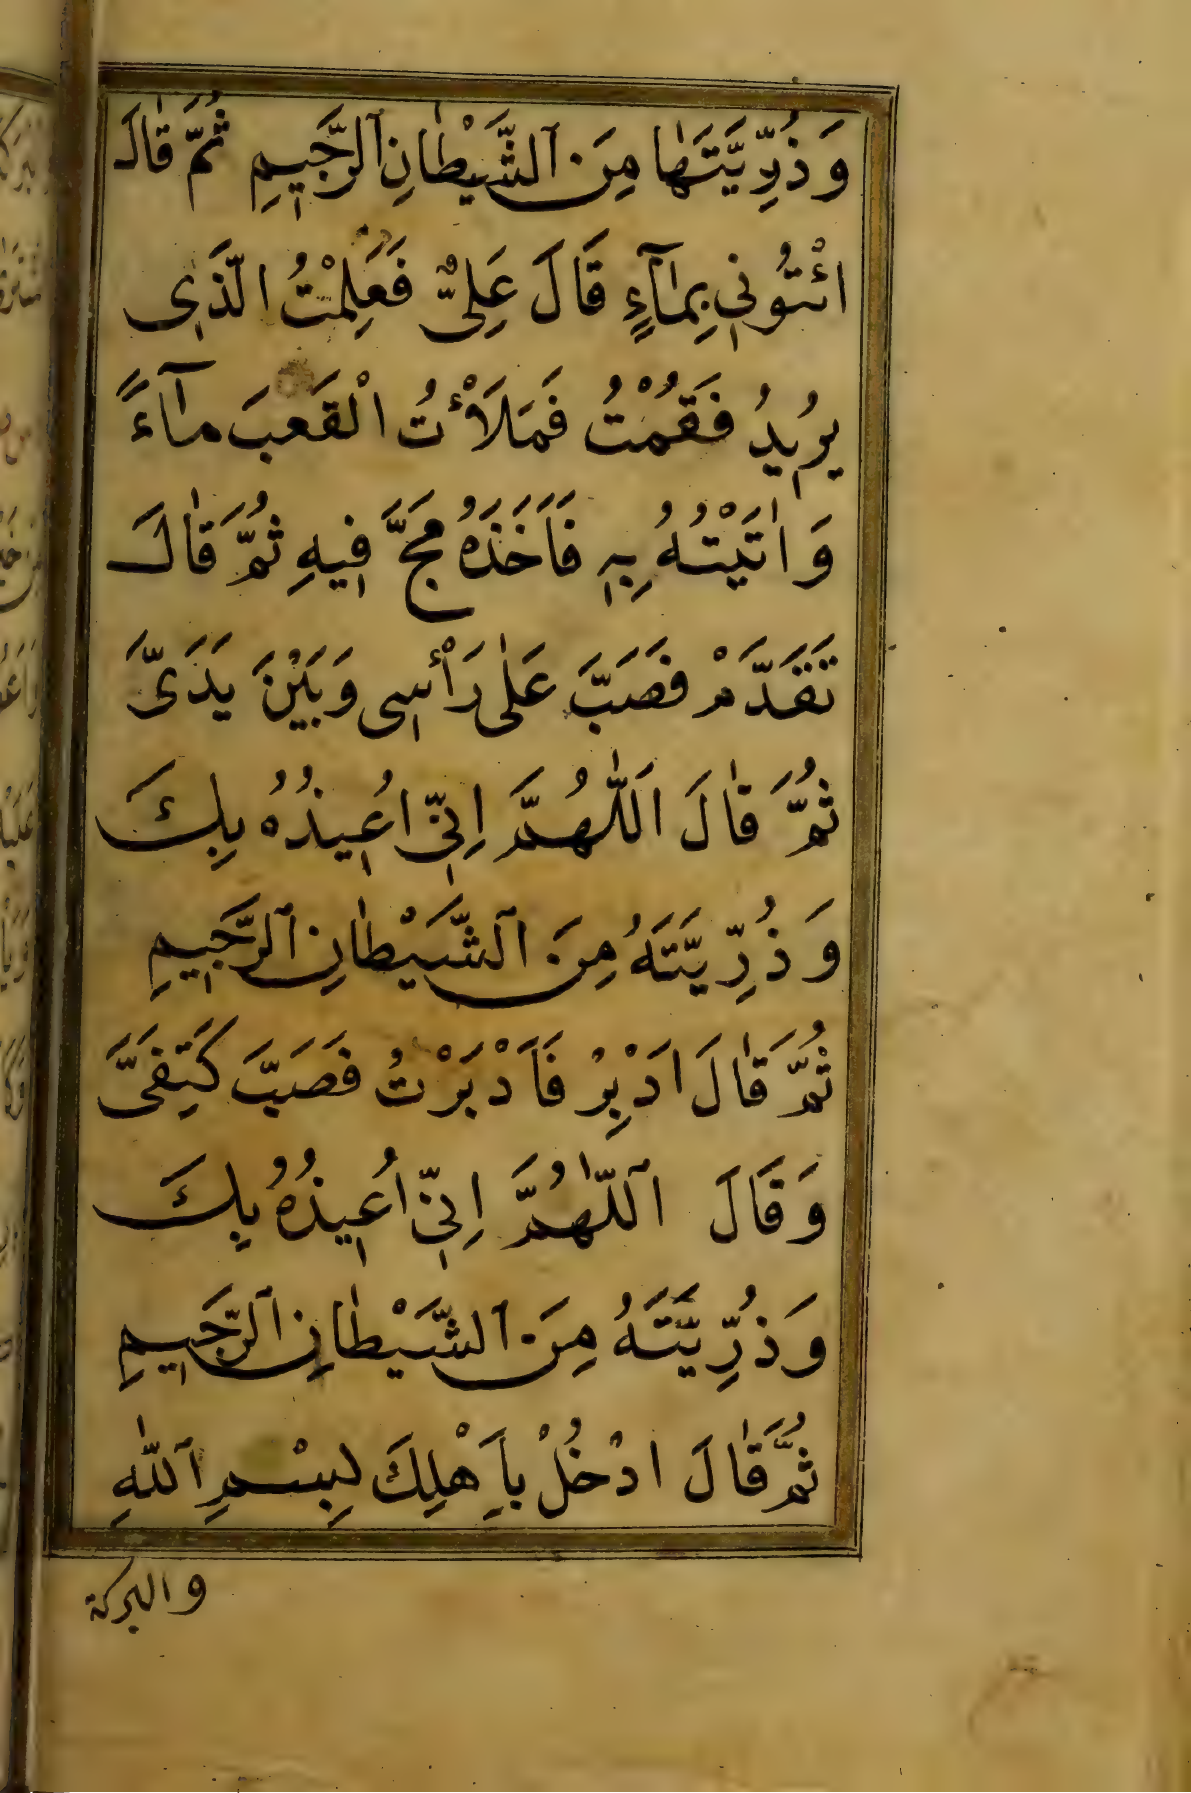 وَذُرِّيَّتَهٰا مِنَ ٱلشَّيْطٰانِ ٱلرَّجٖيمِ ثُمَّ قٰالَ
ائْتُونٖي بِمٰآءٍ قَالَ عَلِيٌّ فَعَلِمْتُ الَّذٖى
يُرٖيدُ فَقُمْتُ فَمَلَأْتُ الْقَعبَ مٰآءً
وَاٰتَيْتُهُ بِهٖ فَاَخَذَهُ مَجَّ فٖيهِ ثُمَّ قٰالَ
تَقَدَّمْ فَصَبَّ عَلٰى رَأْسٖى وَبَيْنَ يَدَىَّ
ثُمَّ قٰالَ اَللّٰهُمَّ اِنّٖي اُعٖيذُهُ بِكَ
وَذُرِّيَّتَهُ مِنَ ٱلشَّيْطٰانِ ٱلرَّجٖيمِ
ثُمَّ قٰالَ اَدْبِرْ فَاَدْبَرْتُ فَصَبَّ كَتِفَىَّ
وَقَالَ ٱللّٰهُمَّ اِنّٖي اُعٖيذُهُ بِكَ
وَذُرِّيَّتَهُ مِنَ ٱلشَّيْطٰانِ ٱلرَّجٖيمِ
ثُمَّ قٰالَ ادْخُلْ بِاَهْلِكَ بِسْمِ ٱللّٰهِ
والبركة